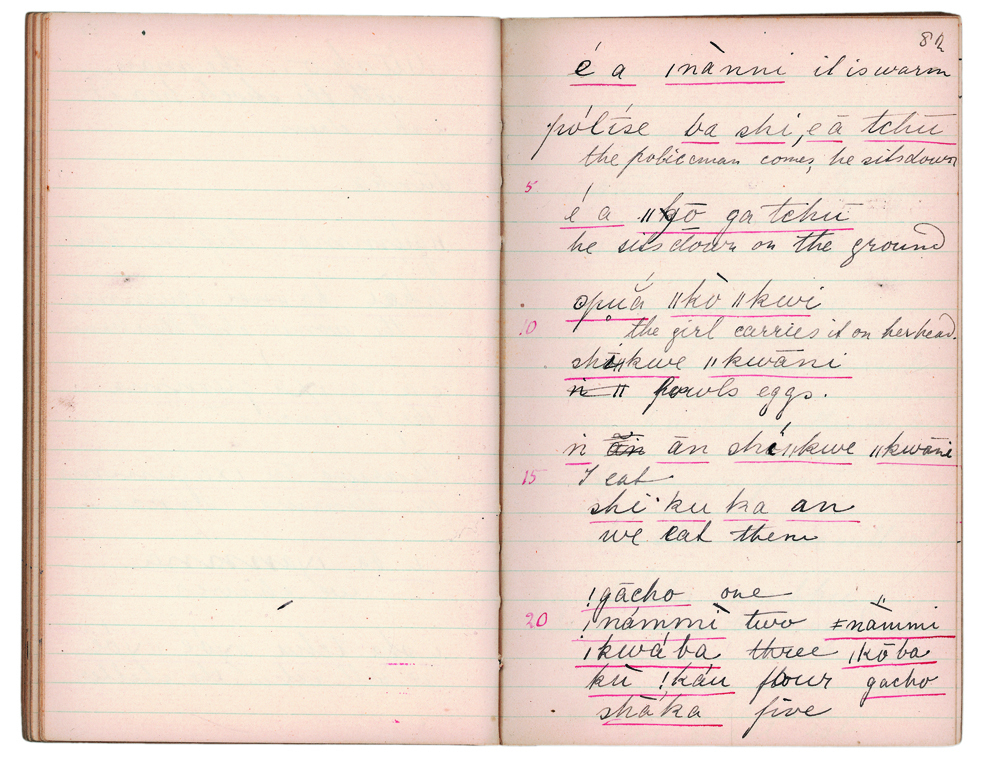 é a ǀnànni it is warm
pólíse ba shi, e ā tchū
the policeman comes, he sits down
5
é a ǁkō ga tchū
he sits down on the ground
opŭá ǁkò ǁkwi
10 the girl carries it on her head.
shíǁkwe ǁkwāni
fowls eggs.
ǹ ān shíǁkwe ǁkwāni
15 I eat
shi ku ka an
we eat them
!gācho one
20 ǀnámmì two ǂnàmmi
ǀkwába three ǀkōba
kù !káu four gacho
shāka five